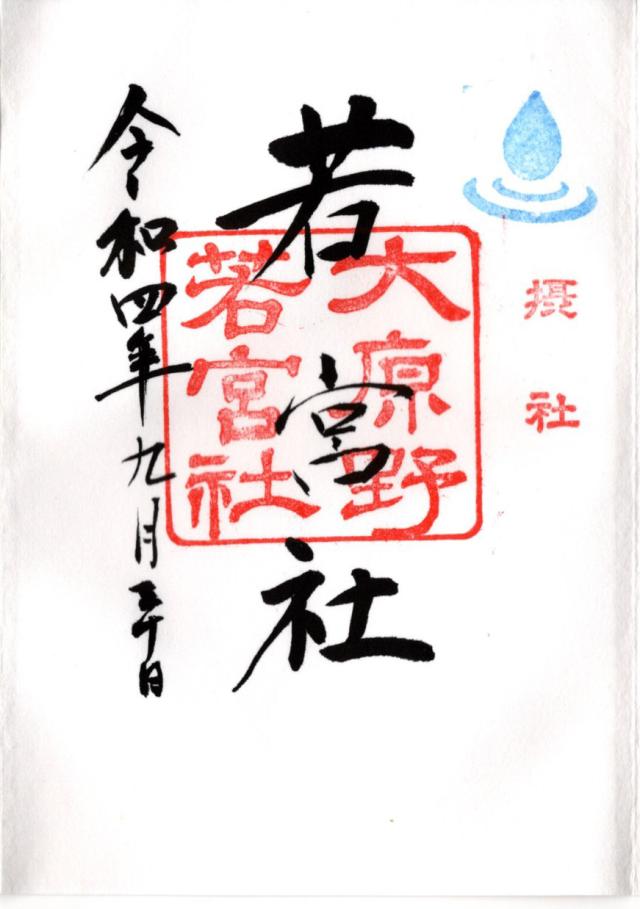 摂社
若宮社
大原野
若宮社
令和四年九月三十日